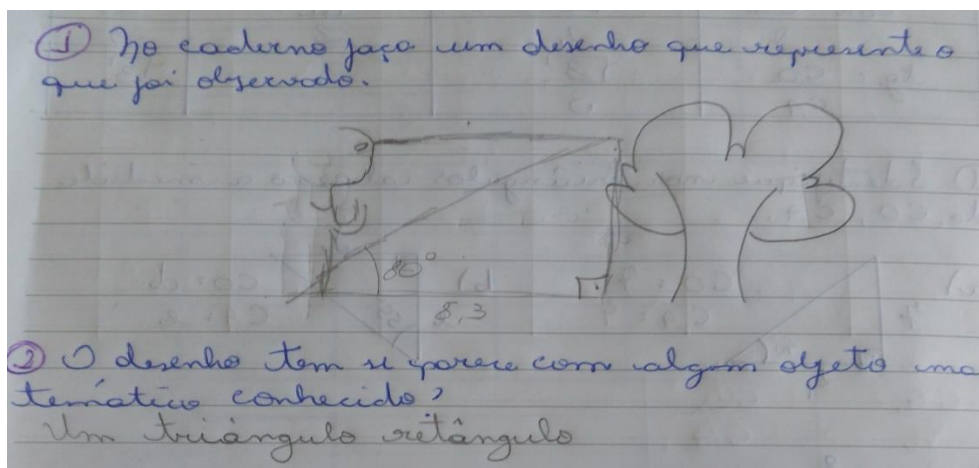 ① No caderno faça um desenho que represente o
que foi observado.
80°
8,3
② O desenho tem se parece com algum objeto ma
temático conhecido?
Um triângulo retângulo